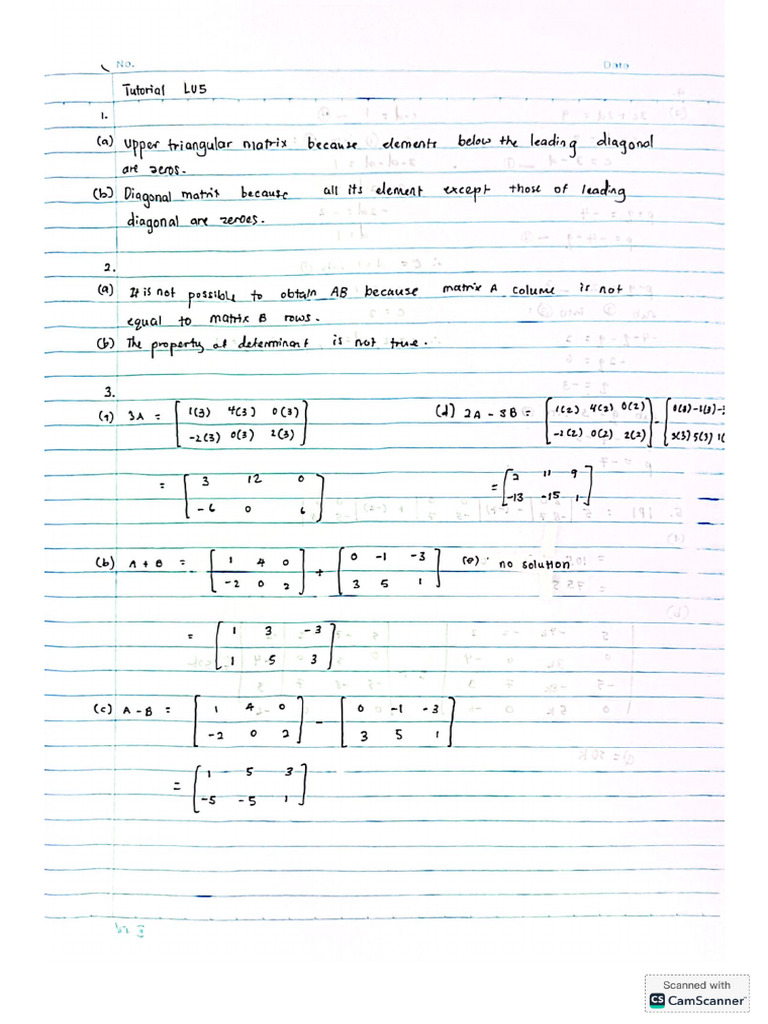 No.
Date
Tutorial LU5
1.
(a) Upper triangular matrix because elements below the leading diagonal
are zeros.
(b) Diagonal matrix because all its element except those of leading
diagonal are zeroes.
2.
(a) It is not possible to obtain AB because matrix A column is not
equal to matrix B rows.
(b) The property of determinant is not true.
3.
(a) 3A = [ 1(3) 4(3) 0(3)
-2(3) 0(3) 2(3) ]
= [ 3 12 0
-6 0 6 ]
(d) 2A - 3B = [ 1(2) 4(2) 0(2) ] - [ 0(3) -1(3) -3
-2(2) 0(2) 2(2) ] 3(3) 5(3) 1(
= [ 2 11 9
-13 -15 1 ]
(b) A + B = [ 1 4 0 ] + [ 0 -1 -3 ]
-2 0 2 3 5 1
= [ 1 3 -3
1 5 3 ]
(e) : no solution
(c) A - B = [ 1 4 0 ] - [ 0 -1 -3 ]
-2 0 2 3 5 1
= [ 1 5 3
-5 -5 1 ]
Scanned with
CS CamScanner